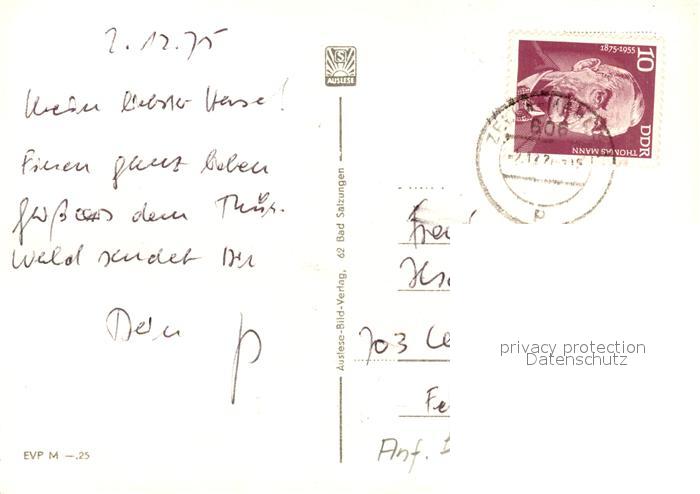 2.12.75
Mein liebster Hase!
Einen ganz lieben
Gruß aus dem Thür.
Wald sendet Dir
Dein P
EVP M —.25
AUSLESE
Auslese-Bild-Verlag, 62 Bad Salzungen
1875-1955
10
DDR
THOMAS MANN
606
703
privacy protection
Datenschutz